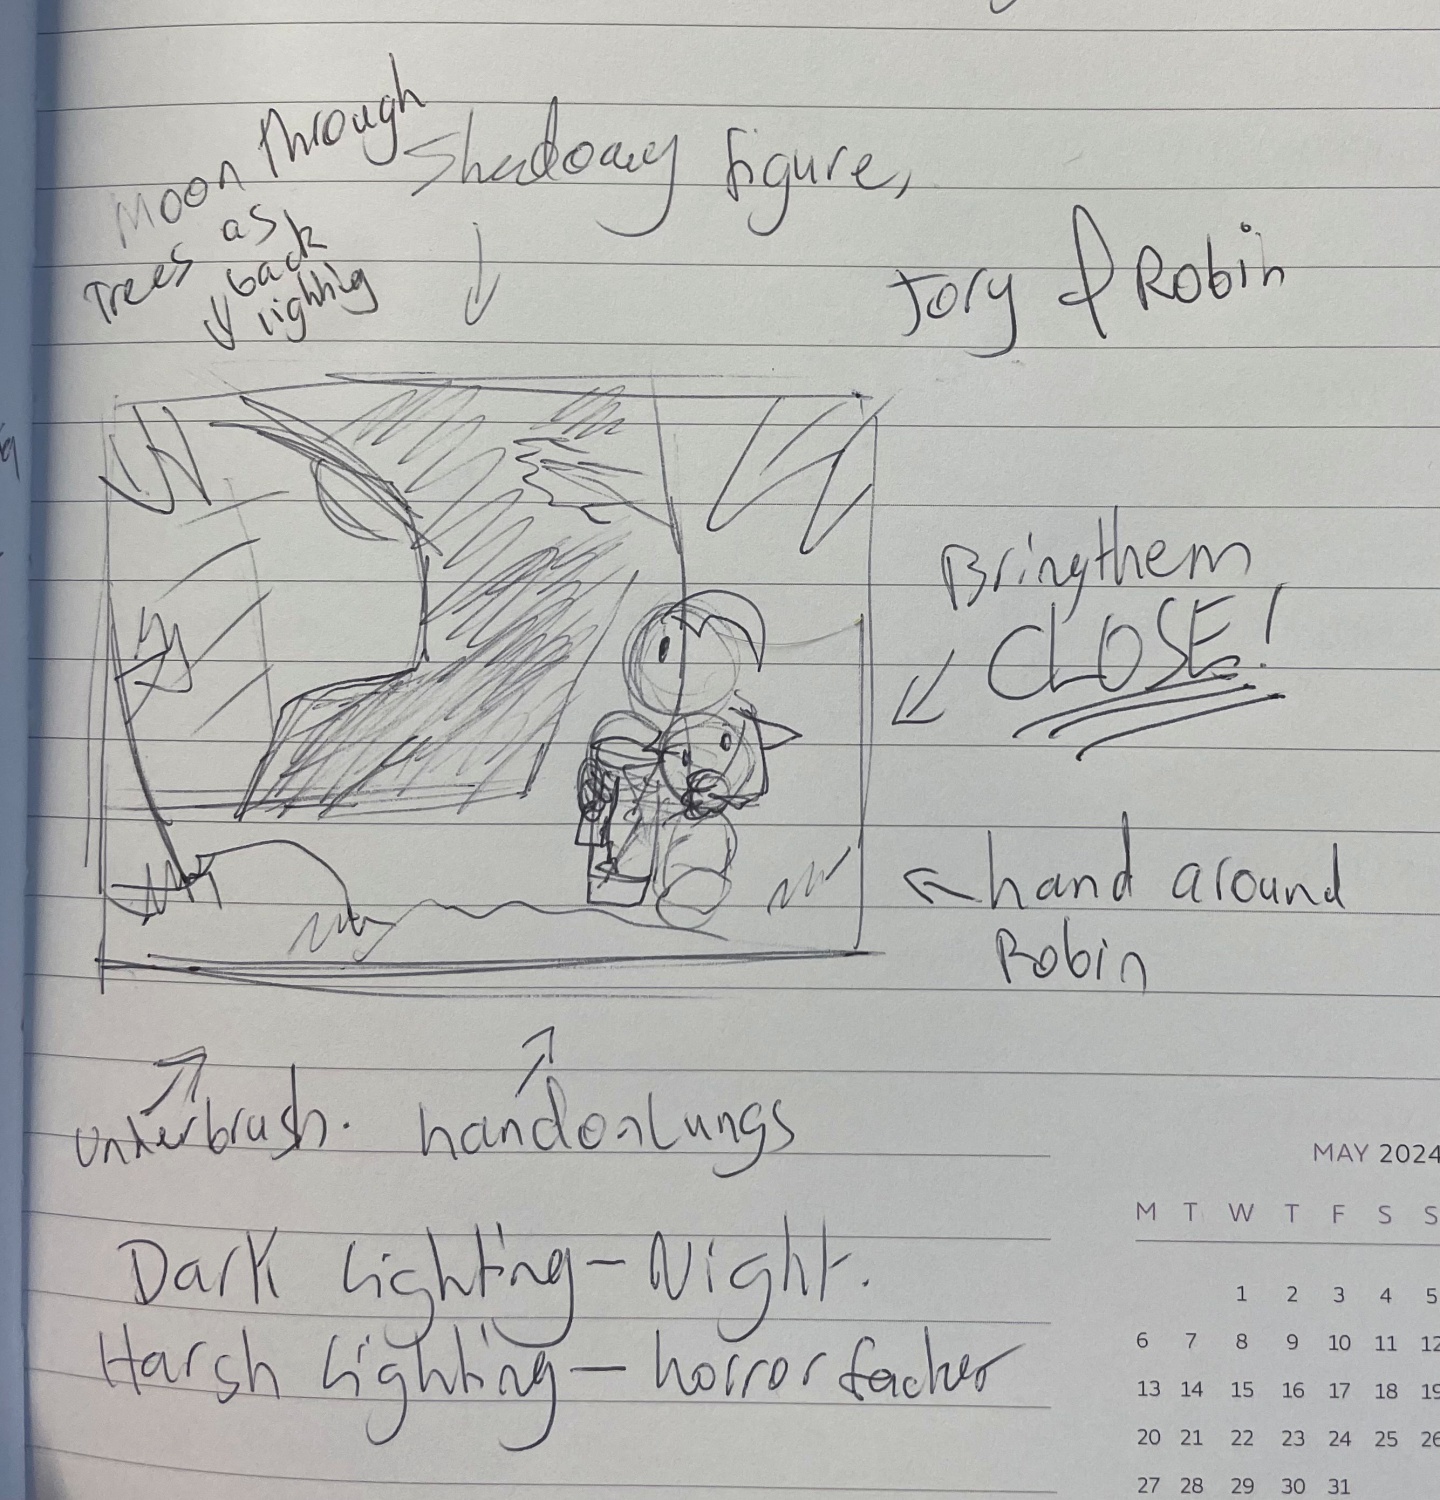 Moon through
Trees as
back
lighting
Shadowy figure,
Jory & Robin
Bring them
CLOSE!
hand around
Robin
underbrush.
hand on Lungs
Dark Lighting - Night.
Harsh Lighting - horror
MAY 2024
M T W T F S S
1 2 3 4 5
6 7 8 9 10 11 12
13 14 15 16 17 18 19
20 21 22 23 24 25 26
27 28 29 30 31